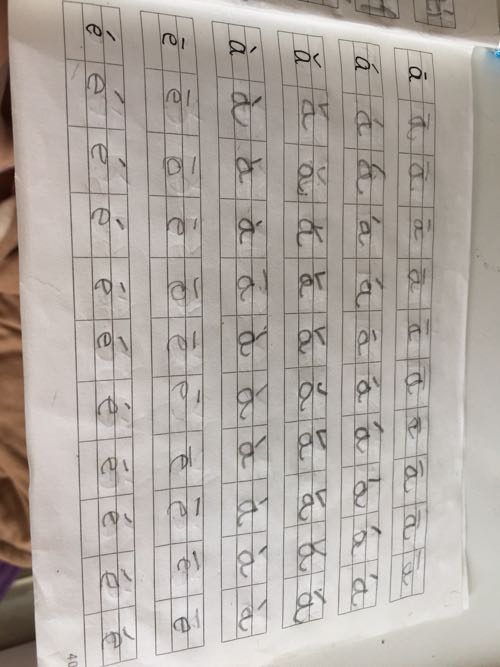 ā ā ā ā ā ā ā ā ā ā ā
á á á á á á á á á á á
ǎ ǎ ǎ ǎ ǎ ǎ ǎ ǎ ǎ ǎ ǎ
à à à à à à à à à à à
ē ē ē ē ē ē ē ē ē ē ē
é é é é é é é é é é é